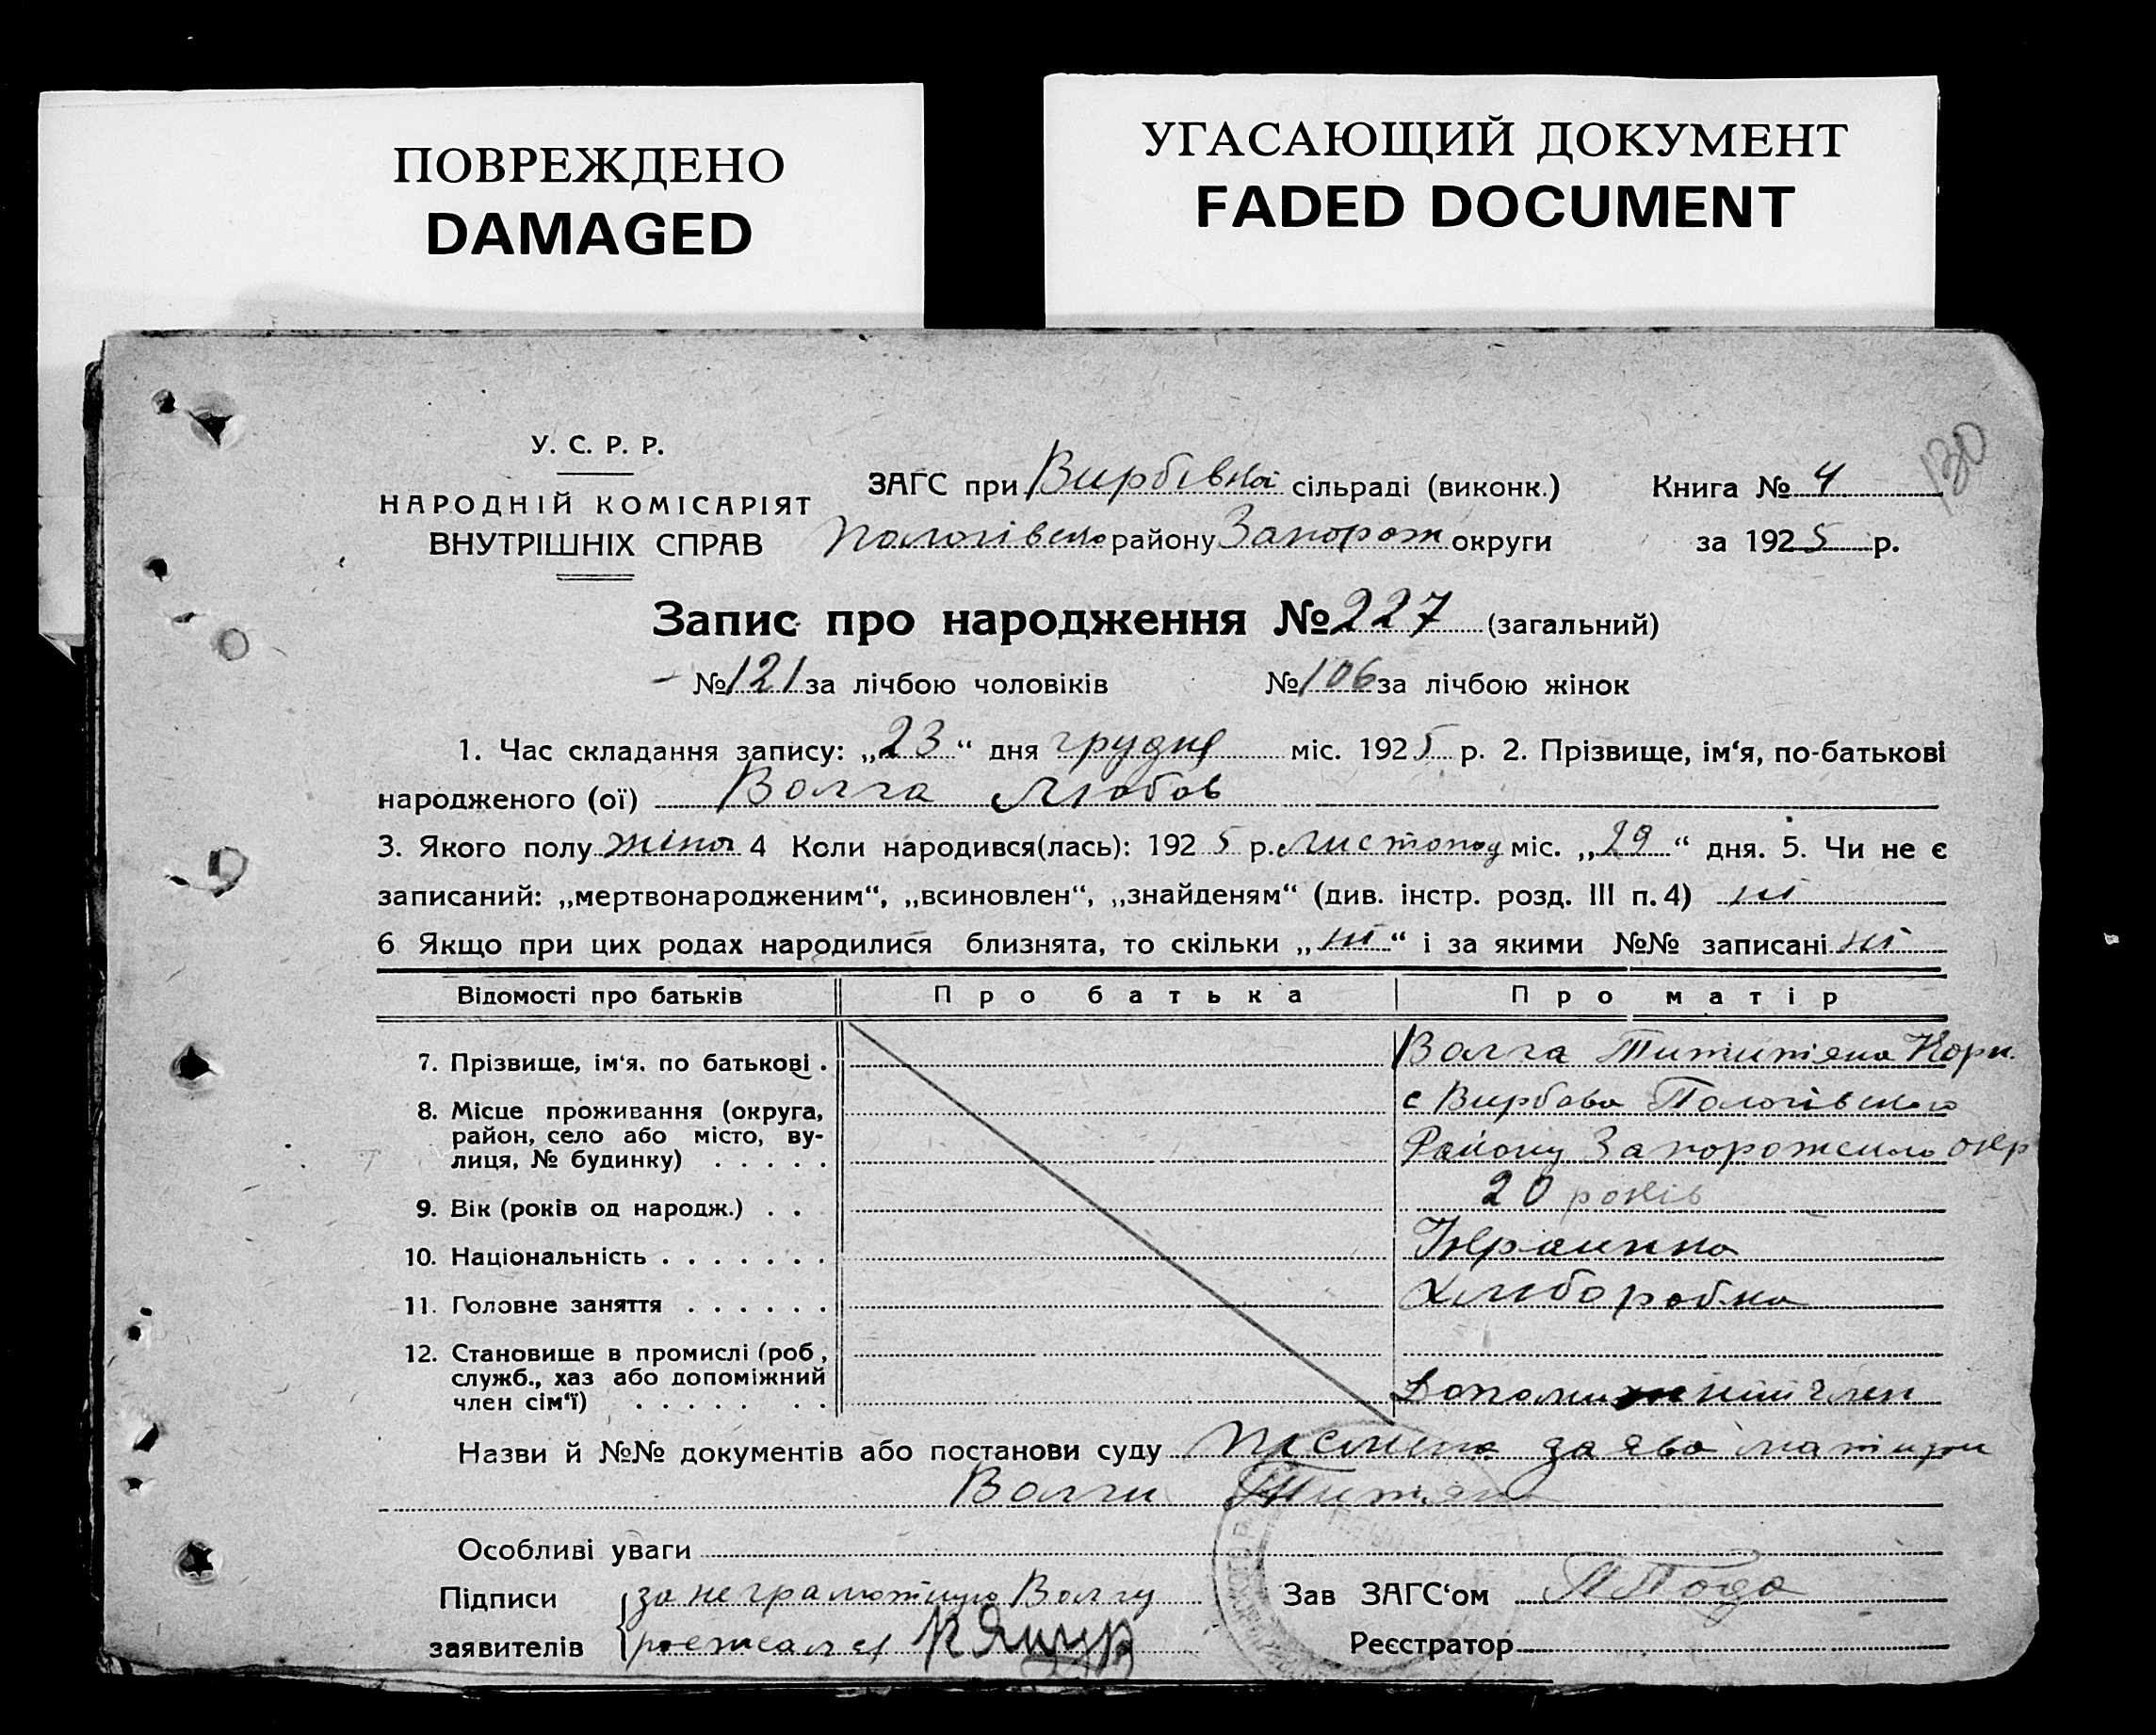 ПОВРЕЖДЕНО
DAMAGED
УГАСАЮЩИЙ ДОКУМЕНТ
FADED DOCUMENT
130
У. С. Р. Р.
НАРОДНІЙ КОМІСАРІЯТ
ВНУТРІШНІХ СПРАВ
ЗАГС при Вирбівкой сільраді (виконк.)
Пологівсько району Запорож округи
Книга № 4
за 1925 р.
Запис про народження № 227 (загальний)
№ 121 за лічбою чоловіків № 106 за лічбою жінок
1. Час складання запису: „23“ дня грудня міс. 1925 р. 2. Прізвище, ім‘я, по-батькові
народженого (ої) Волга Любов
3. Якого полу жіноч 4 Коли народився(лась): 1925 р. листопад міс. „29“ дня. 5. Чи не є
записаний: „мертвонародженим“, „всиновлен“, „знайденям“ (див. інстр. розд. III п. 4) ні
6 Якщо при цих родах народилися близнята, то скільки „ні“ і за якими №№ записані ні
Відомості про батьків Про батька Про матір
7. Прізвище, ім‘я. по батькові . Волга Корн.
8. Місце проживання (округа, с Вирбово Пологівського
район, село або місто, ву-
лиця, № будинку) . . . . . Району Запорожсько окр
9. Вік (років од народж.) . . 20 років
10. Національність . . . . . . . Украинка
11. Головне заняття . . . . . . Хлиборобка
12. Становище в промислі (роб,
служб., хаз або допоміжний
член сім‘ї) . . . . . . . Допомижний член
Назви й №№ документів або постанови суду заява матири
Волги Титяни
Особливі уваги
Підписи за неграмотную Волгу Зав ЗАГС‘ом
заявителів Реєстратор